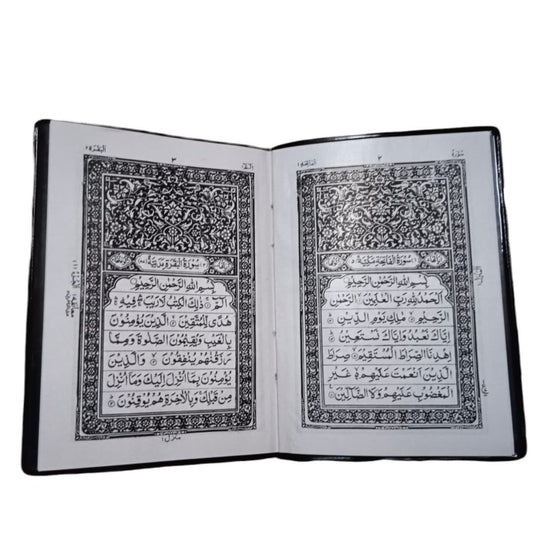 سُورَة
٢
سُورَةُ الْفَاتِحَةِ مَكِّيَّةٌ
بِسْمِ اللهِ الرَّحْمٰنِ الرَّحِيْمِ
اَلْحَمْدُ لِلّٰهِ رَبِّ الْعٰلَمِيْنَ ۙ الرَّحْمٰنِ
الرَّحِيْمِ ۙ مٰلِكِ يَوْمِ الدِّيْنِ ؕ
اِيَّاكَ نَعْبُدُ وَاِيَّاكَ نَسْتَعِيْنُ ؕ
اِهْدِنَا الصِّرَاطَ الْمُسْتَقِيْمَ ۙ صِرَاطَ
الَّذِيْنَ اَنْعَمْتَ عَلَيْهِمْ ۙ غَيْرِ
الْمَغْضُوْبِ عَلَيْهِمْ وَلَا الضَّآلِّيْنَ
الٓمّٓ ١
٣
البقرة ٢
سُورَةُ الْبَقَرَةِ مَدَنِيَّةٌ
بِسْمِ اللهِ الرَّحْمٰنِ الرَّحِيْمِ
الٓمّٓ ۚ ذٰلِكَ الْكِتٰبُ لَا رَيْبَ ۛ فِيْهِ ۛ
هُدًى لِّلْمُتَّقِيْنَ ۙ الَّذِيْنَ يُؤْمِنُوْنَ
بِالْغَيْبِ وَيُقِيْمُوْنَ الصَّلٰوةَ وَمِمَّا
رَزَقْنٰهُمْ يُنْفِقُوْنَ ۙ وَالَّذِيْنَ
يُؤْمِنُوْنَ بِمَآ اُنْزِلَ اِلَيْكَ وَمَآ اُنْزِلَ
مِنْ قَبْلِكَ ۚ وَبِالْاٰخِرَةِ هُمْ يُوْقِنُوْنَ
منزل ١